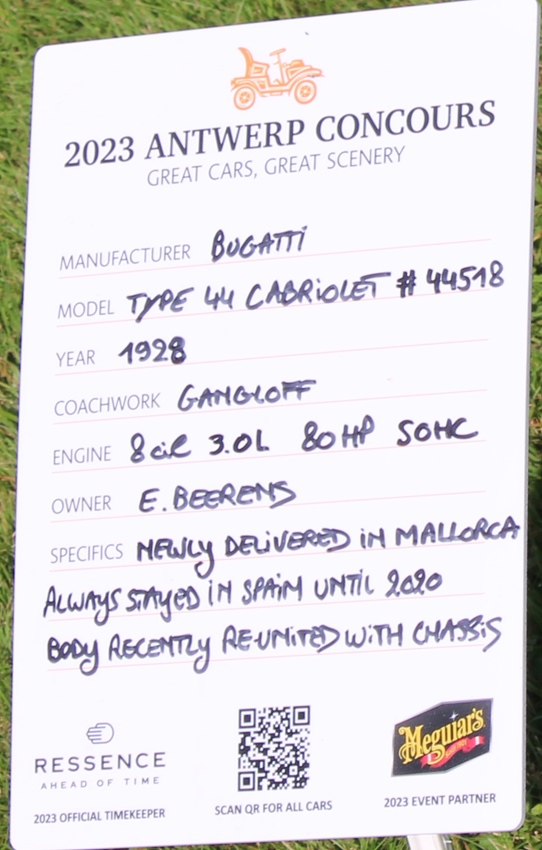 2023 ANTWERP CONCOURS
GREAT CARS, GREAT SCENERY
MANUFACTURER BUGATTI
MODEL TYPE 44 CABRIOLET # 44518
YEAR 1928
COACHWORK GANGLOFF
ENGINE 8 cil 3.0L 80 HP SOHC
OWNER E. BEERENS
SPECIFICS NEWLY DELIVERED IN MALLORCA
ALWAYS STAYED IN SPAIN UNTIL 2020
BODY RECENTLY RE-UNITED WITH CHASSIS
RESSENCE
AHEAD OF TIME
2023 OFFICIAL TIMEKEEPER
SCAN QR FOR ALL CARS
Meguiar's
2023 EVENT PARTNER